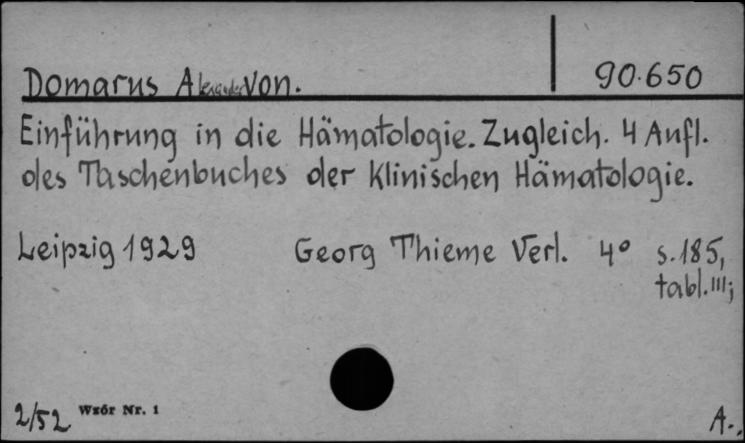 Domarus Alexander von.
90.650
Einführung in die Hämatologie. Zugleich. 4 Aufl.
des Taschenbuches der Klinischen Hämatologie.
Leipzig 1929 Georg Thieme Verl. 4° s.185,
tabl.III;
2/52 Wzór Nr. 1
A..